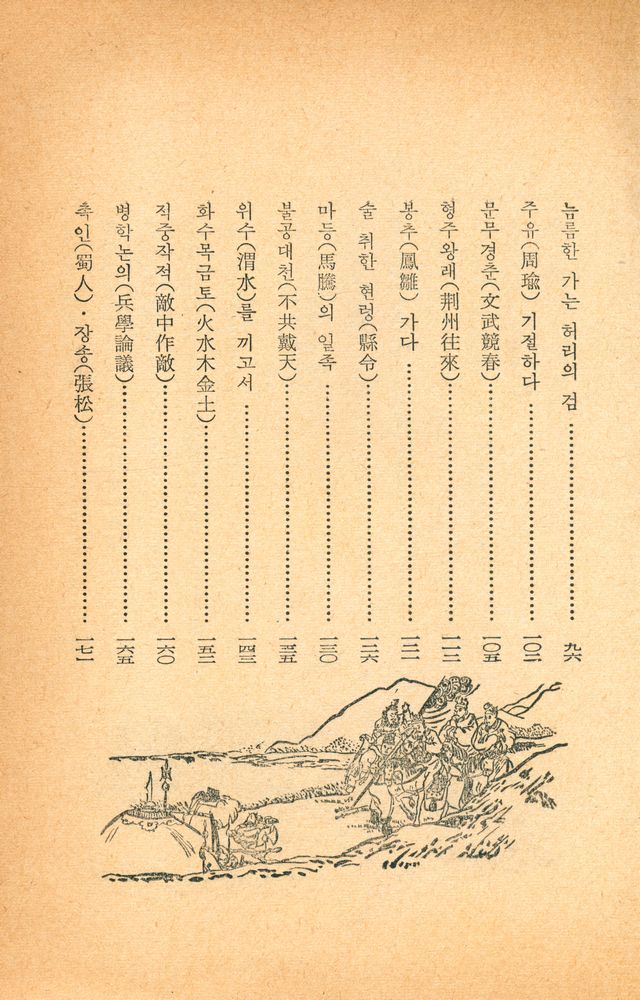 늠름한 가는 허리의 검 ………… 九六
주유(周瑜) 기절하다 ………… 一〇二
문무경춘(文武競春) ………… 一〇五
형주왕래(荆州往來) ………… 一一二
봉추(鳳雛) 가다 ………… 一二一
술 취한 현령(縣令) ………… 一二六
마등(馬騰)의 일족 ………… 一三〇
불공대천(不共戴天) ………… 一三五
위수(渭水)를 끼고서 ………… 一四三
화수목금토(火水木金土) ………… 一五二
적중작적(敵中作敵) ………… 一六〇
병학논의(兵學論議) ………… 一六五
촉인(蜀人)·장송(張松) ………… 一七一